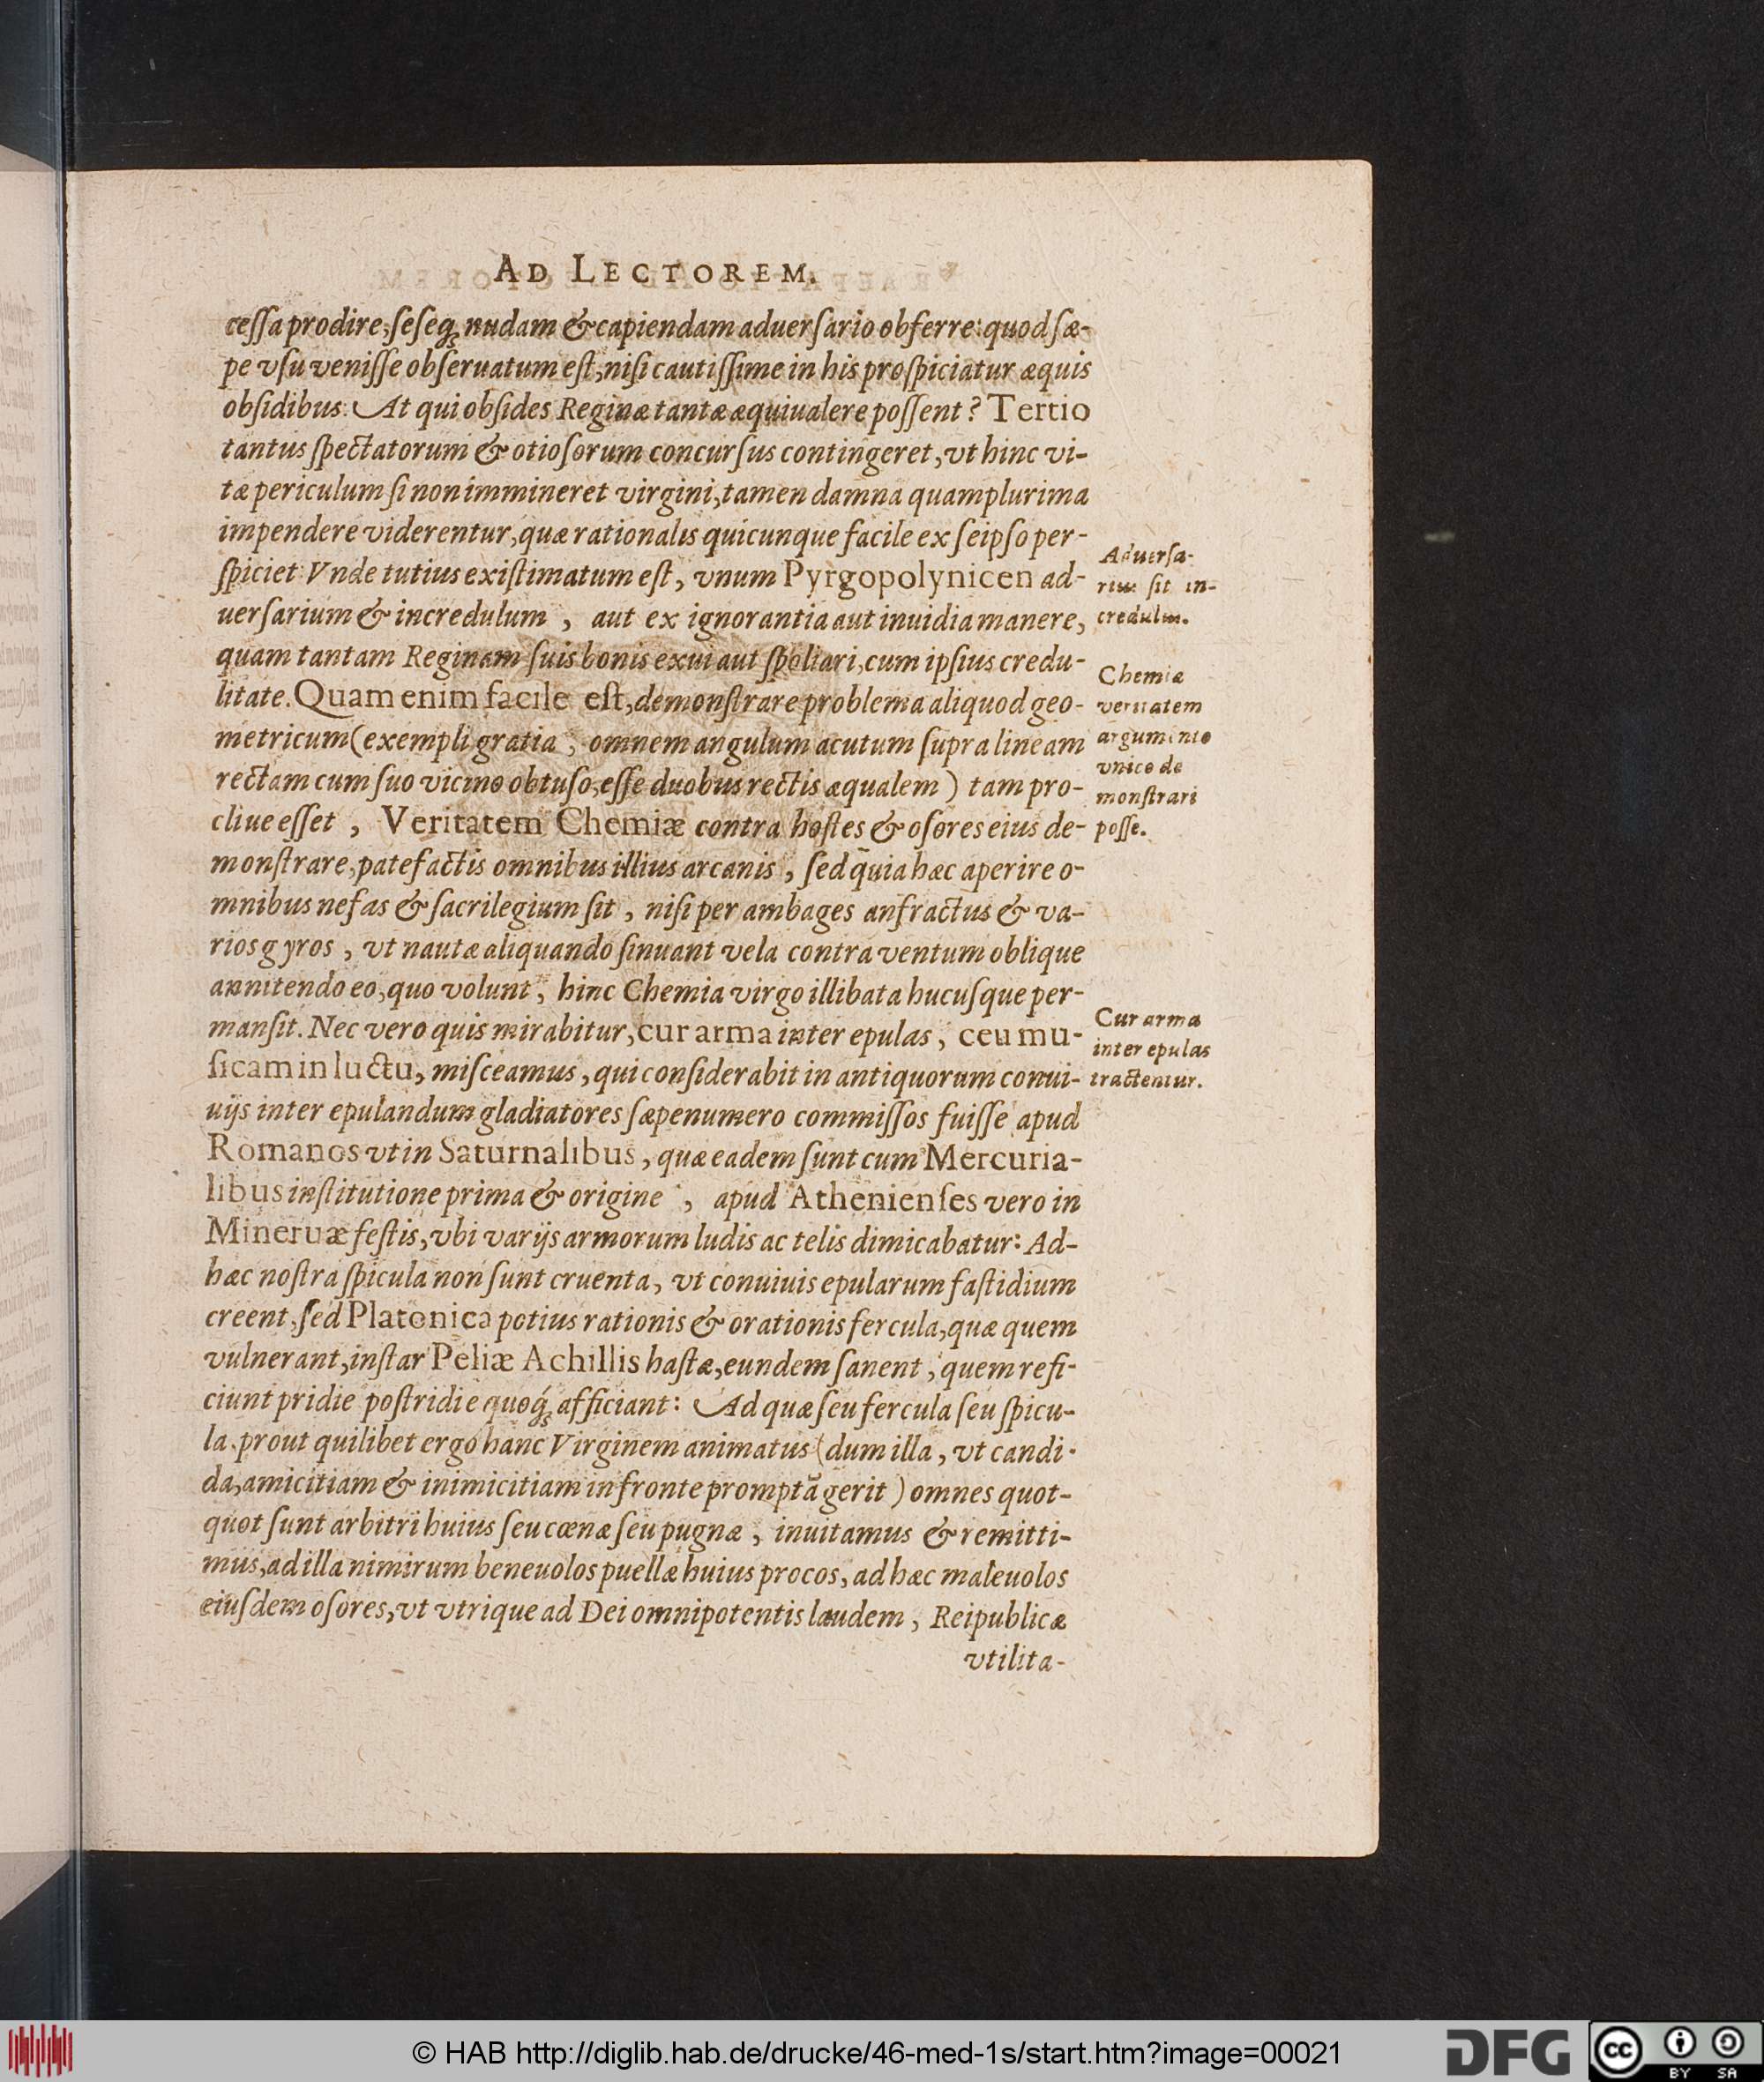 AD LECTOREM.
ceſſa prodire, ſeſeq; nudam & capiendam aduerſario obferre: quod ſæ-
pe vſu veniſſe obſeruatum eſt, niſi cautiſſime in his proſpiciatur æquis
obſidibus: At qui obſides Reginæ tantæ æquiualere poſſent? Tertio
tantus ſpectatorum & otioſorum concurſus contingeret, vt hinc vi-
tæ periculum ſi non immineret virgini, tamen damna quamplurima
impendere viderentur, quæ rationalis quicunque facile ex ſeipſo per-
ſpiciet: Vnde tutius exiſtimatum eſt, vnum Pyrgopolynicen ad-
uerſarium & incredulum, aut ex ignorantia aut inuidia manere,
quam tantam Reginam ſuis bonis exui aut ſpoliari, cum ipſius credu-
litate. Quam enim facile eſt, demonſtrare problema aliquod geo-
metricum (exempli gratia, omnem angulum acutum ſupra lineam
rectam cum ſuo vicino obtuſo, eſſe duobus rectis æqualem) tam pro-
cliue eſſet, Veritatem Chemiæ contra hoſtes & oſores eius de-
monſtrare, patefactis omnibus illius arcanis, ſed quia hæc aperire o-
mnibus nefas & ſacrilegium ſit, niſi per ambages anfractus & va-
rios gyros, vt nautæ aliquando ſinuant vela contra ventum oblique
annitendo eo, quo volunt, hinc Chemia virgo illibata hucuſque per-
manſit. Nec vero quis mirabitur, cur arma inter epulas, ceu mu-
ſicam in luctu, miſceamus, qui conſiderabit in antiquorum conui-
uijs inter epulandum gladiatores ſæpenumero commiſſos fuiſſe apud
Romanos vt in Saturnalibus, quæ eadem ſunt cum Mercuria-
libus inſtitutione prima & origine, apud Athenienſes vero in
Mineruæ feſtis, vbi varijs armorum ludis ac telis dimicabatur: Ad-
hæc noſtra ſpicula non ſunt cruenta, vt conuiuis epularum faſtidium
creent, ſed Platonica potius rationis & orationis fercula, quæ quem
vulnerant, inſtar Peliæ Achillis haſtæ, eundem ſanent, quem refi-
ciunt pridie poſtridie quoq; afficiant: Ad quæ ſeu fercula ſeu ſpicu-
la, prout quilibet ergo hanc Virginem animatus (dum illa, vt candi-
da, amicitiam & inimicitiam in fronte promptā gerit) omnes quot-
quot ſunt arbitri huius ſeu cœnæ ſeu pugnæ, inuitamus & remitti-
mus, ad illa nimirum beneuolos puellæ huius procos, ad hæc maleuolos
eiuſdem oſores, vt vtrique ad Dei omnipotentis laudem, Reipublicæ
vtilita-
Aduerſa-
rius ſit in-
credulus.
Chemiæ
veritatem
argumento
vnico de
monſtrari
poſſe.
Cur arma
inter epulas
tractentur.
© HAB http://diglib.hab.de/drucke/46-med-1s/start.htm?image=00021
DFG
cc
BY SA